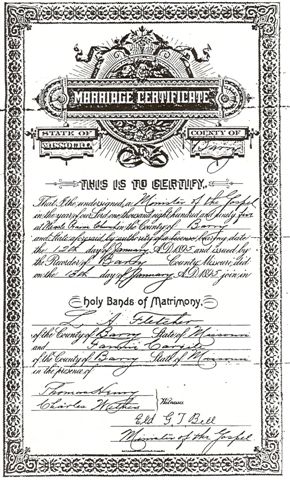 MARRIAGE CERTIFICATE
STATE OF COUNTY OF
MISSOURI. Barry
THIS IS TO CERTIFY,
That I the undersigned a Minister of the Gospel
in the year of our Lord one thousand eight hundred and ninety five
at in the County of Barry
and State aforesaid by authority of a License, bearing date
the 12th day of January A.D. 1895 and issued by
the Recorder of Barry County Missouri, did
on the 13th day of January A.D. 1895 join in
Holy Bands of Matrimony.
Fletcher
of the County of Barry State of Missouri
and
of the County of Barry State of Missouri
in the presence of
Thomas Henry
Charles Witnesses
Eld. G T Bell
Minister of the Gospel